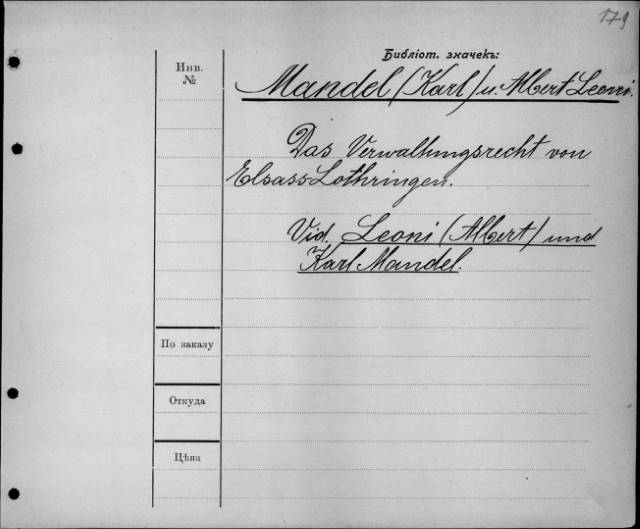 179
Библіот. значекъ:
Инв.
№
Mandel (Karl) u. Albert Leoni.
Das Verwaltungsrecht von
Elsass-Lothringen.
Vid. Leoni (Albert) und
Karl Mandel.
По заказу
Откуда
Цѣна